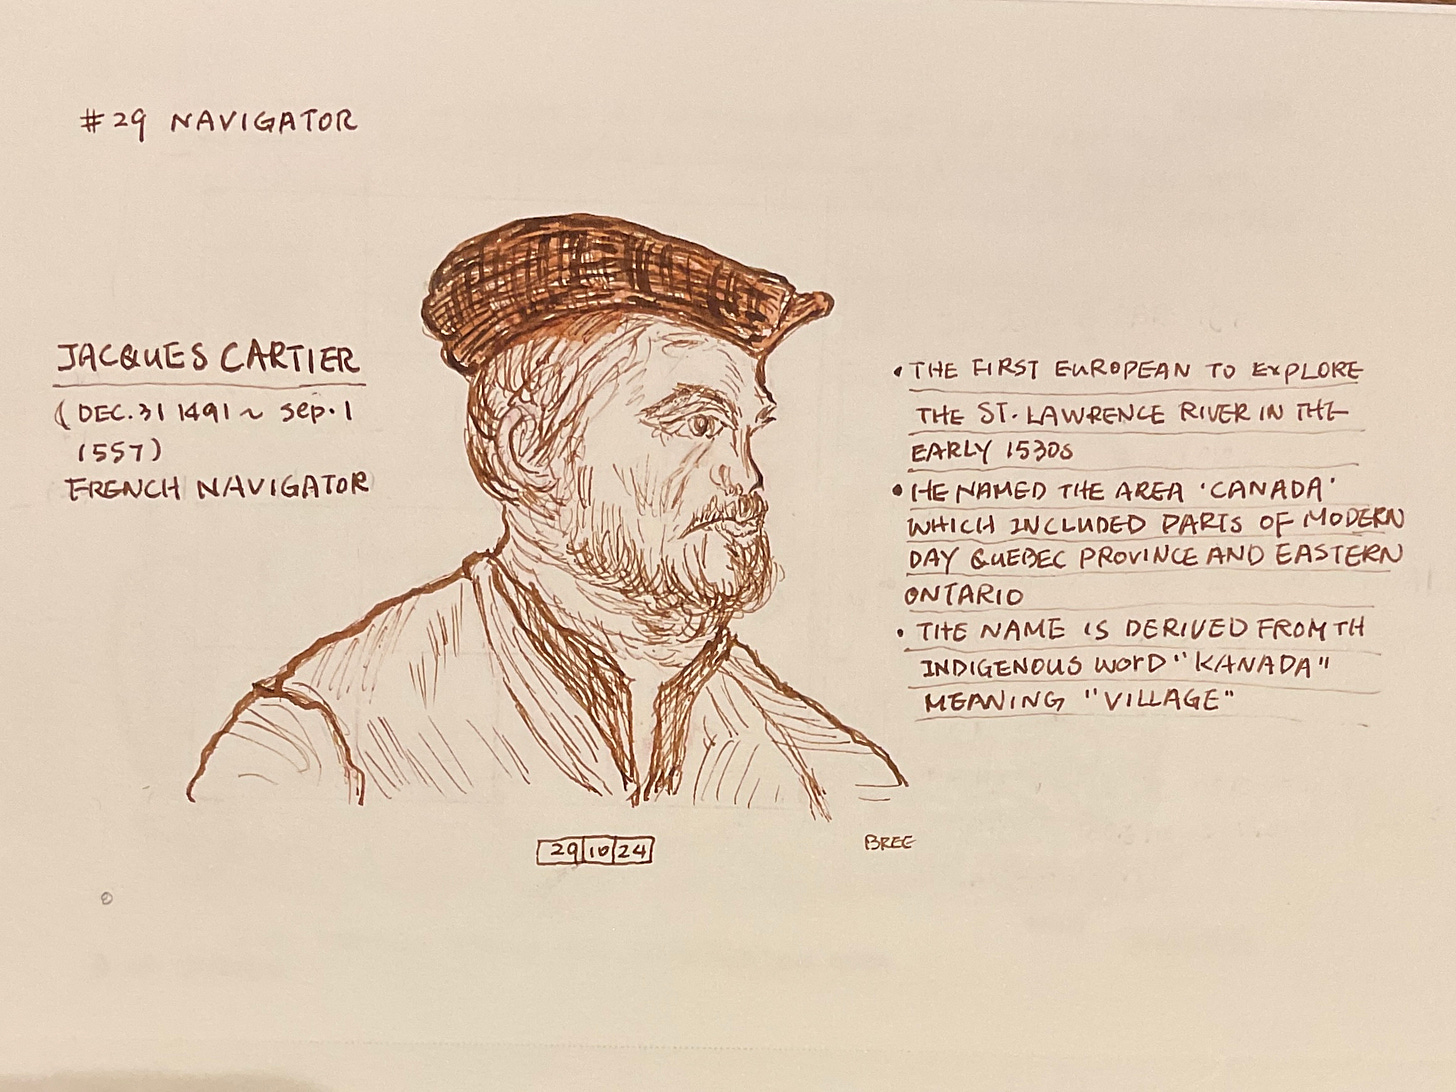 #29 NAVIGATOR
JACQUES CARTIER
(DEC.31 1491 ~ Sep.1
1557)
FRENCH NAVIGATOR
• THE FIRST EUROPEAN TO EXPLORE
THE ST. LAWRENCE RIVER IN THE
EARLY 1530s
• HE NAMED THE AREA 'CANADA'
WHICH INCLUDED PARTS OF MODERN
DAY QUEBEC PROVINCE AND EASTERN
ONTARIO
• THE NAME IS DERIVED FROM TH
INDIGENOUS WORD "KANADA"
MEANING "VILLAGE"
29 10 24
BREE